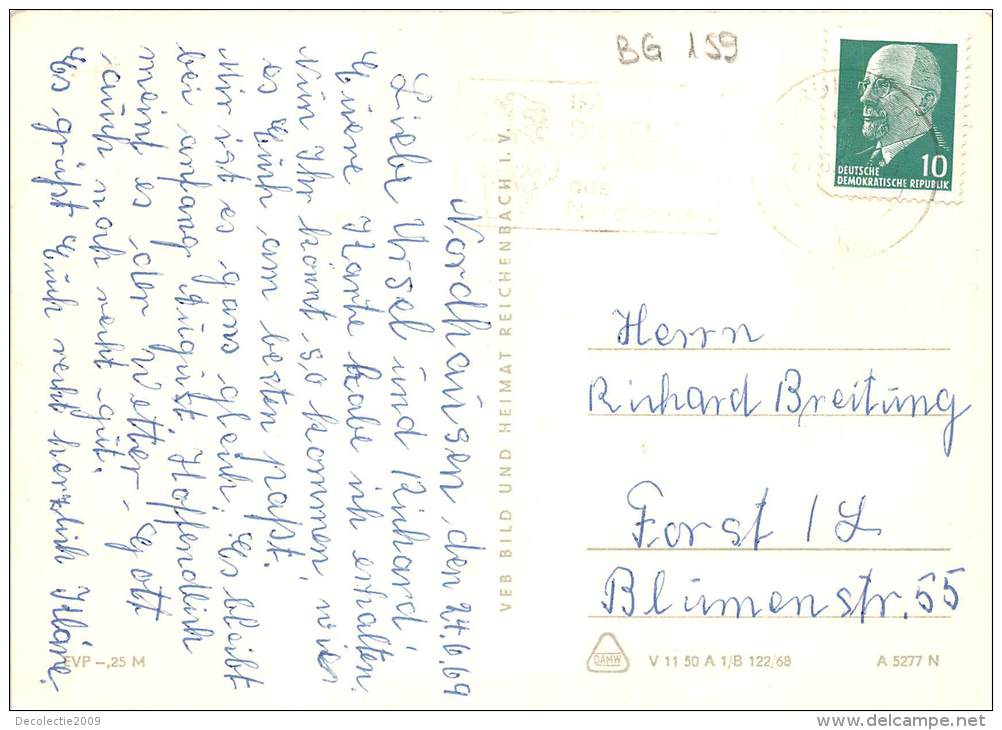 BG 159
DEUTSCHE
DEMOKRATISCHE REPUBLIK
10
aus
Nordhausen, den 24.6.69
Liebe Ursel und Richard!
Euere Karte habe ich erhalten.
Nun Ihr könnt so kommen wie
es Euch am besten paßt.
Mir ist es ganz gleich. Es bleibt
bei anfang August. Hoffendlich
meint es der Wetter-Gott
auch noch recht gut.
Es grüßt Euch recht herzlich Kläre.
VEB BILD UND HEIMAT REICHENBACH I. V.
Herrn
Richard Breitung
Forst / L
Blumenstr. 55
EVP –,25 M
DAMW
V 11 50 A 1/B 122/68
A 5277 N
Decolectie2009
www.delcampe.net